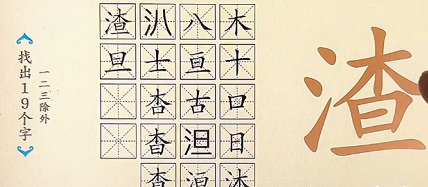 找出19个字
一二三除外
渣 汃 八 木
旦 士 亘 十
杏 古 口
杳 泹 日
查 洹 沐
渣